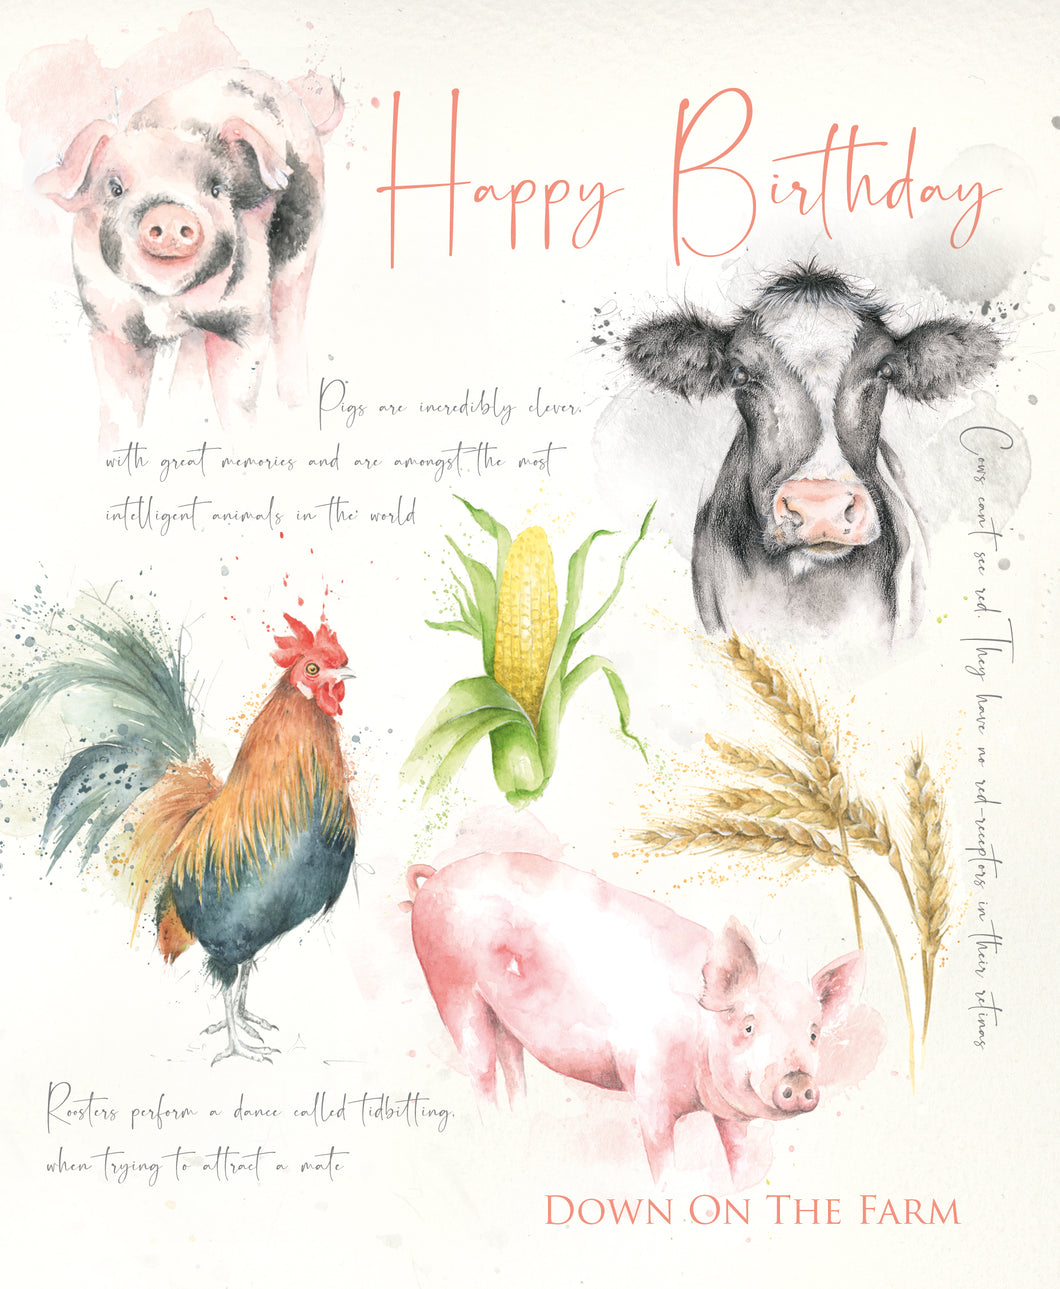 Happy Birthday
Pigs are incredibly clever,
with great memories and are amongst the most
intelligent animals in the world
Cows can't see red. They have no red-receptors in their retinas
Roosters perform a dance called tidbitting,
when trying to attract a mate
Down On The Farm